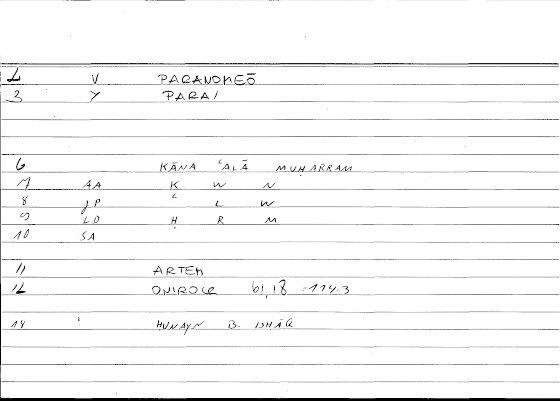 2 V PARANOMEŌ
3 Y PARA/
6 KĀNA ʿALĀ MUḤARRAM
7 AA K W N
8 JP ʿ L W
9 LD Ḥ R M
10 SA
11 ARTEM
12 ONIROCR 61,18 -114.3
14 HUNAYN B. ISHĀQ